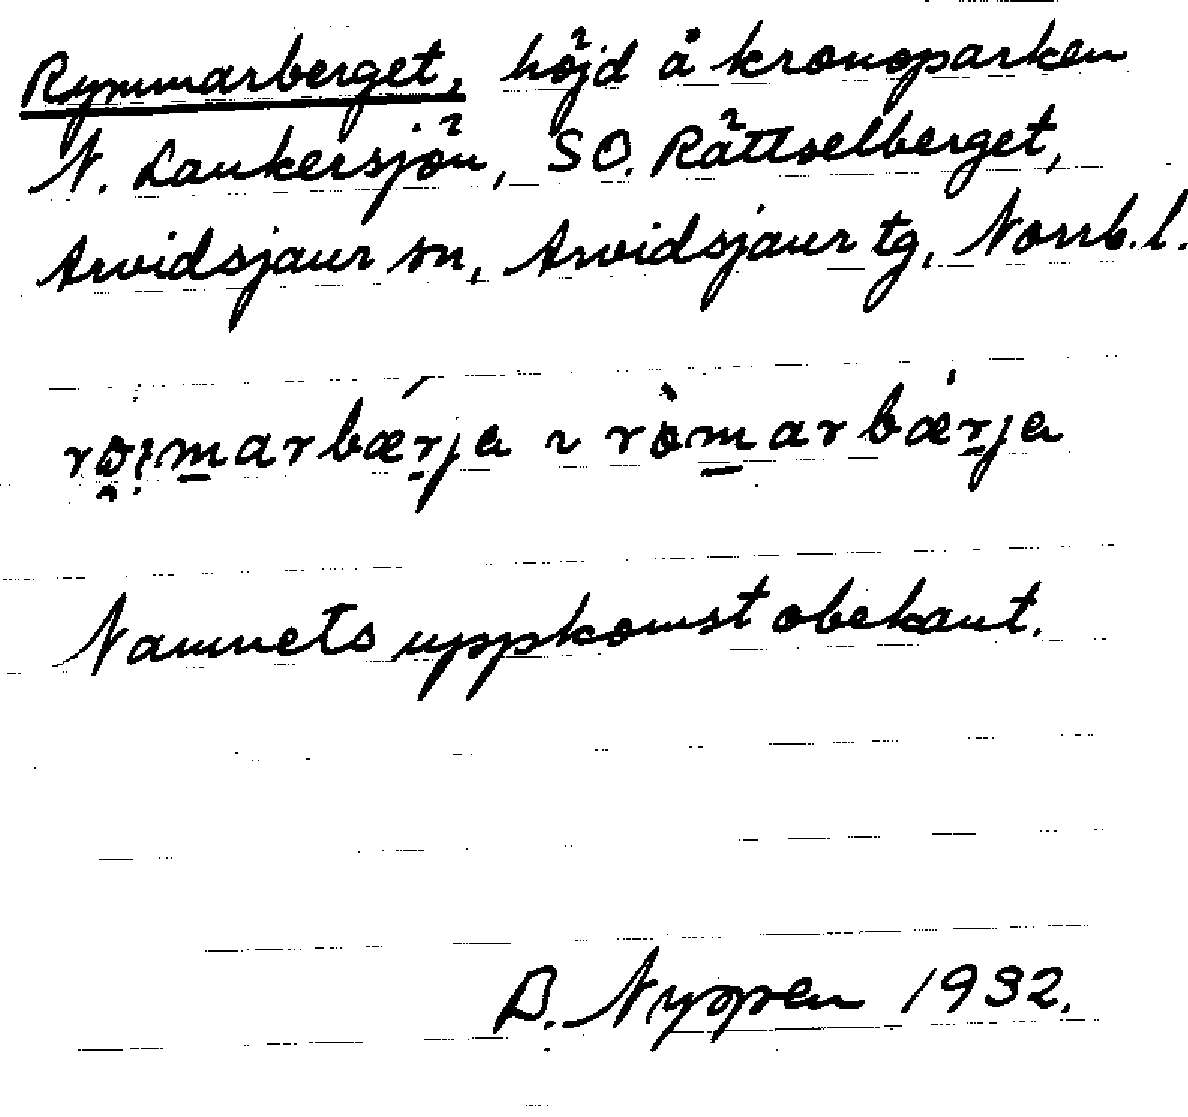 Rymmarberget, höjd å kronoparken
N. Laukersjön, SO. Rättselberget,
Arvidsjaur sn, Arvidsjaur tg, Norrb.l.
~
Namnets uppkomst obekant.
B. Nyppen 1932.